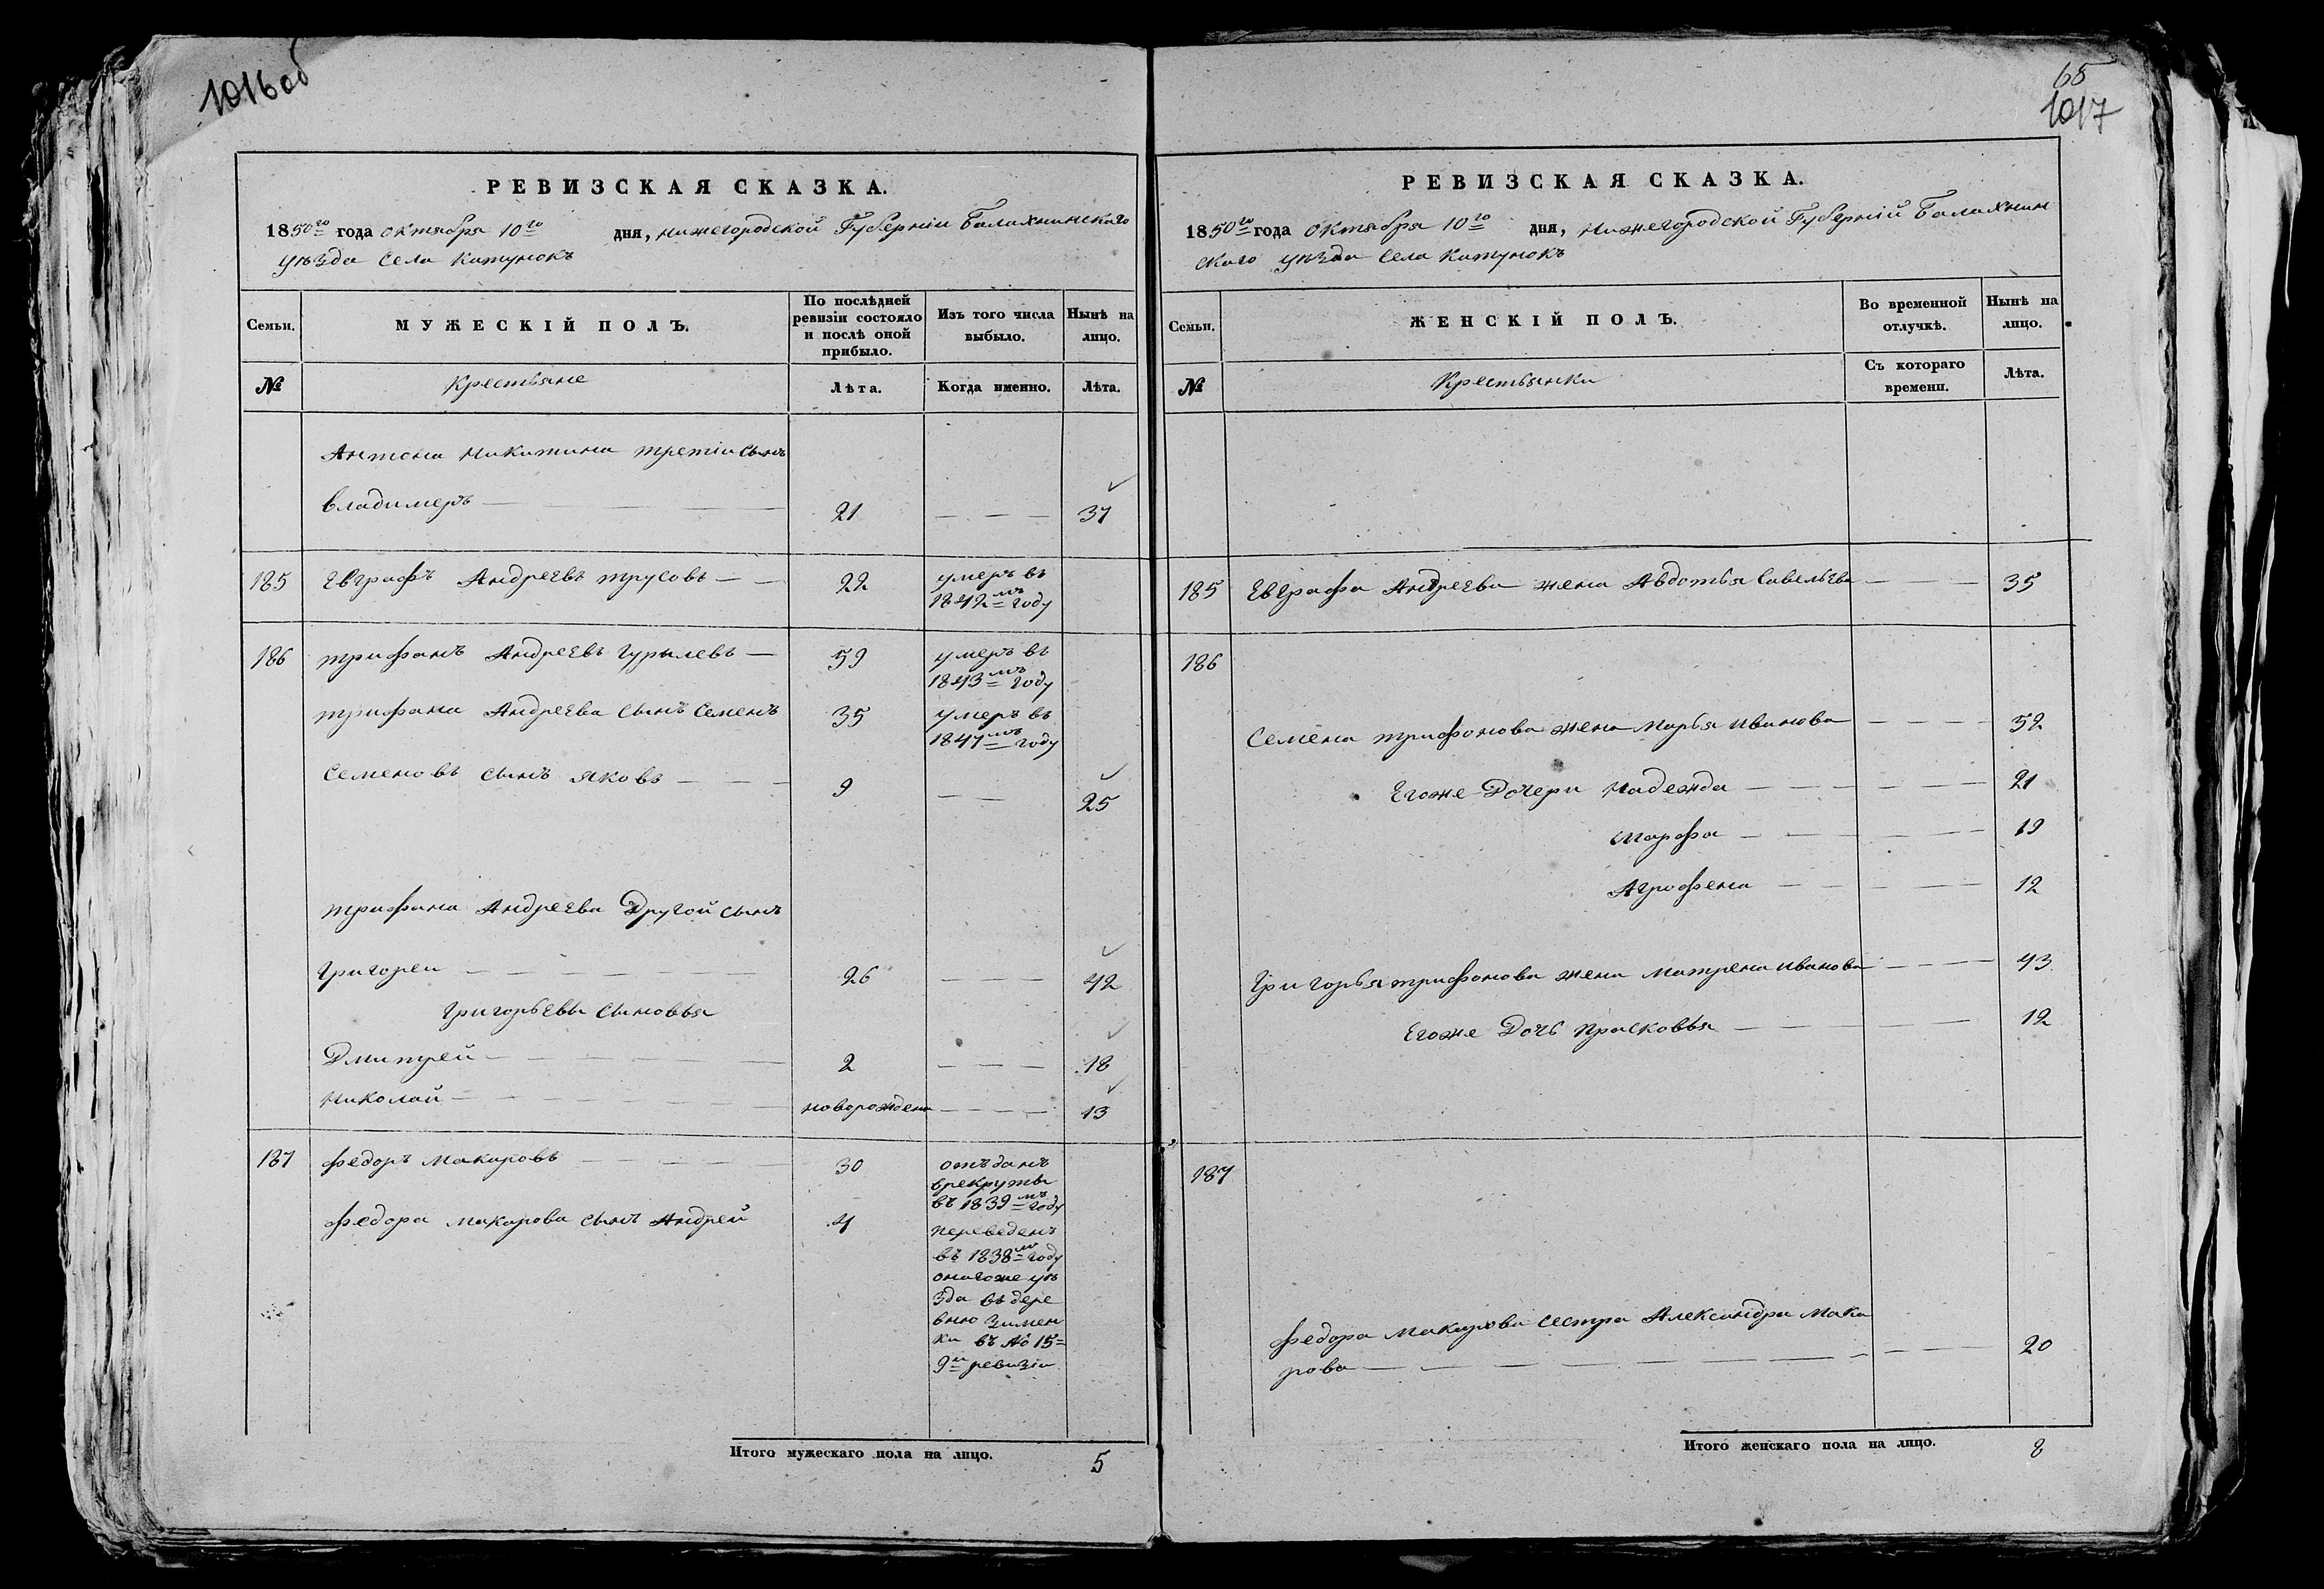 1016 об
РЕВИЗСКАЯ СКАЗКА.
1850го года октября 10го дня, Нижегородской Губерніи Балахнинскаго
уѣзда Села Катунокъ
Семьи.
МУЖЕСКІЙ ПОЛЪ.
По послѣдней
ревизіи состояло
и послѣ оной
прибыло.
Изъ того числа
выбыло.
Нынѣ на
лицо.
№
Крестьяне
Лѣта.
Когда именно.
Лѣта.
Антона Никитина третіи сынъ
Владимеръ 21 37
185 Евграфъ Андреевъ Трусовъ 22 умеръ въ
1842мъ году
186 Трифанъ Андреевъ Гурылевъ 59 умеръ въ
1843мъ году
Трифана Андреева сынъ Семенъ 35 умеръ въ
1847мъ году
Семеновъ сынъ Яковъ 9 25
Трифана Андреева Другой сынъ
Григореи 26 42
Григорьевы сыновья
Дмитрей 2 18
Николай новорожденъ 13
187 Федоръ Макаровъ 30 отъданъ
врекруты
въ 1839мъ году
Федора Макарова сынъ Андрей 4 переведенъ
въ 1838мъ году
онагоже уѣ
зда въ дере
вню Зимен
ки въ № 15=
9й ревизіи
Итого мужескаго пола на лицо. 5
65
1017
РЕВИЗСКАЯ СКАЗКА.
1850го года октября 10го дня, Нижегородской Губерніи Балахнин
скаго уѣзда Села Катунокъ
Семьи.
ЖЕНСКІЙ ПОЛЪ.
Во временной
отлучкѣ.
Нынѣ на
лицо.
№
Крестьянки
Съ котораго
времени.
Лѣта.
185 Евграфа Андреева жена Авдотья Савельева 35
186
Семена Трифонова жена Марья Иванова 52
Егоже Дочери Надежда 21
Марфа 19
Агрофена 12
Григорья Трифонова жена Матрена Иванова 43
Егоже Дочь Прасковья 12
187
Федора Макарова сестра Александра Мака
рова 20
Итого женскаго пола на лицо. 8